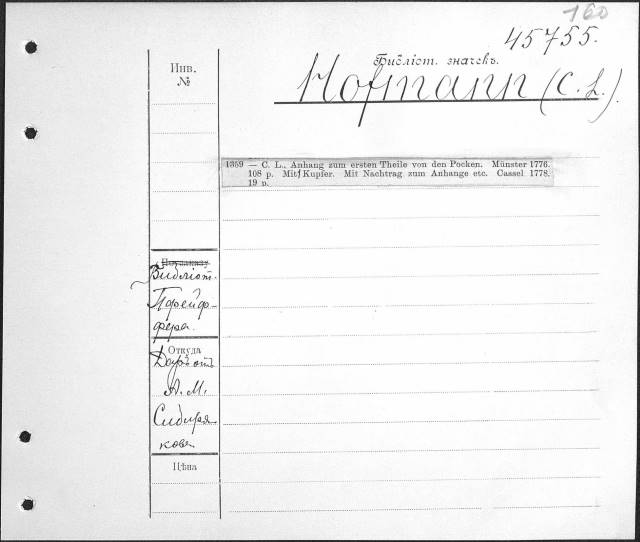 160
45755.
Библіот. значекъ.
Hofmann (C. L.).
Инв.
№
1359 — C. L., Anhang zum ersten Theile von den Pocken. Münster 1776.
108 p. Mit Kupfer. Mit Nachtrag zum Anhange etc. Cassel 1778.
19 p.
Библіот.
Пфейф-
фера.
Откуда
Даръ отъ
А. М.
Сибиря-
кова
Цѣна